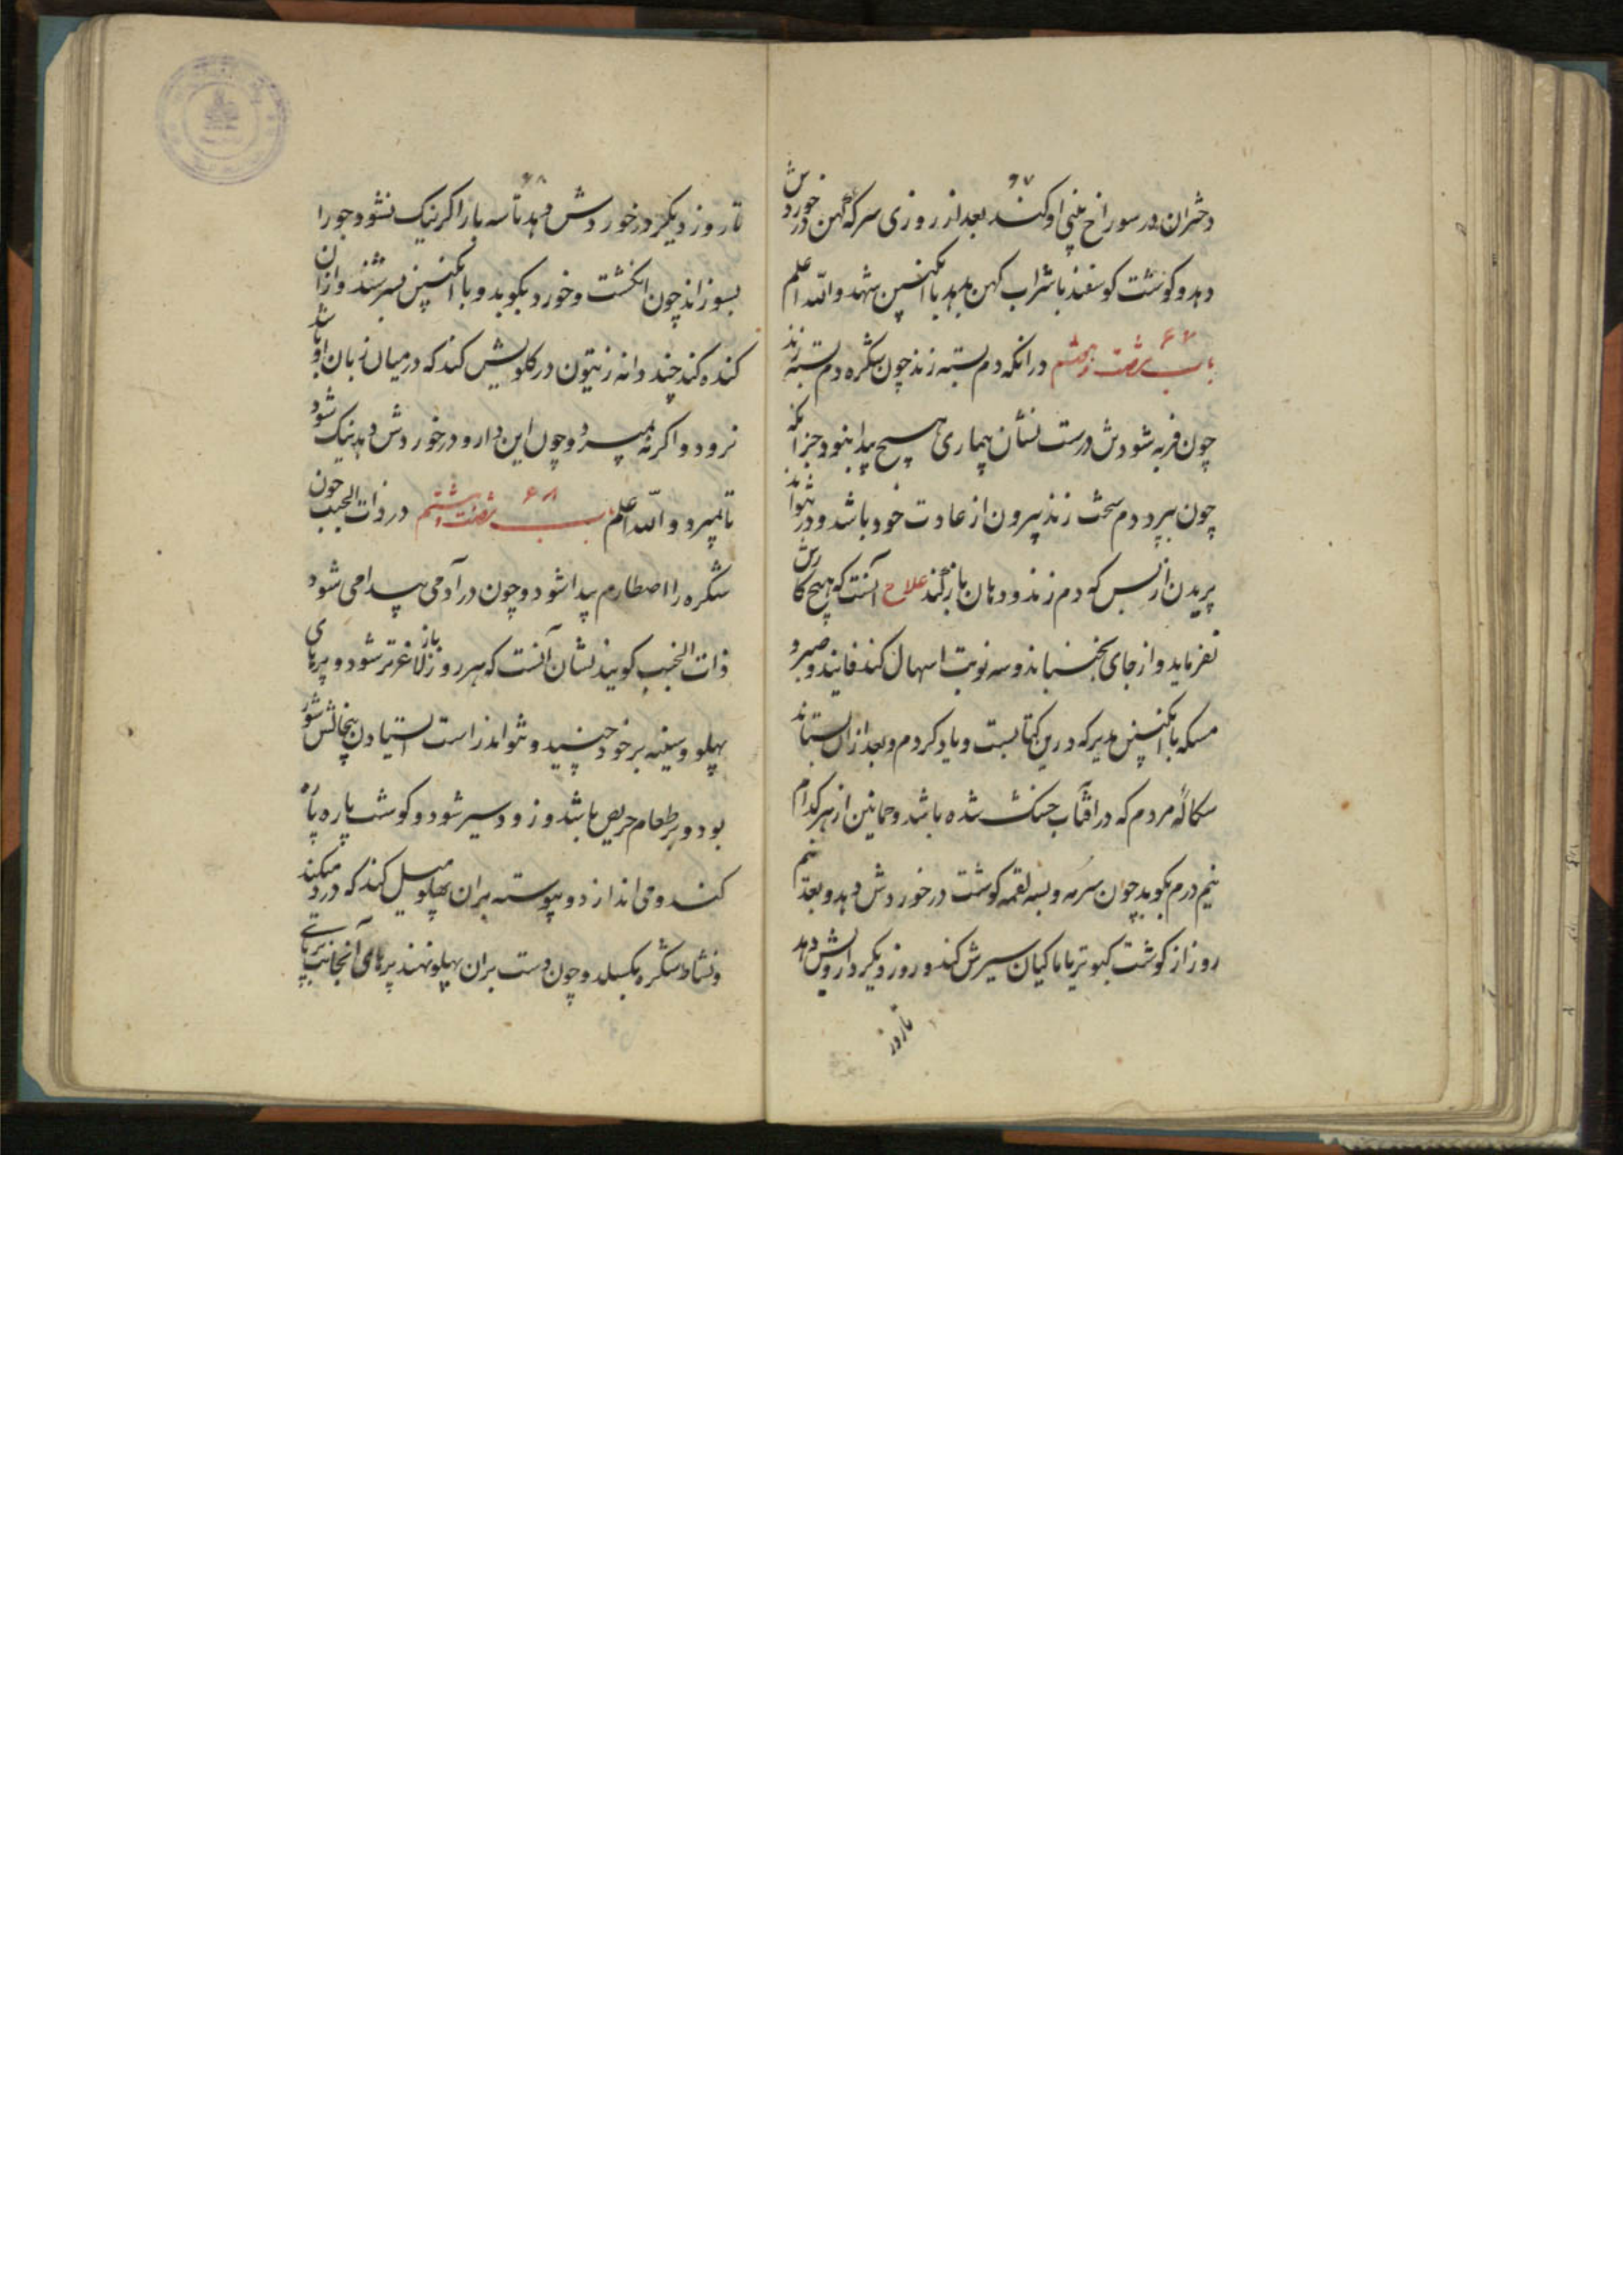 ۶۷
دختران در سوراخ بینی او کند بعد از روزی سرکه کهن در خوردش
دهد و کوشت کوسفند با شراب کهن بدهد با انکبین شهد والله اعلم
باب شصت و هفتم ۶۷ در انکه دم بسته زند چون شکره دم بسته زند
چون فربه شودش درست نشان بیماری هیچ پیدا نبود جز انکه
چون بپرد دم سخت زند بیرون از عادت خود باشد و در نتواند
پریدن از بس که دم زند و دهان باز کند علاج آنست که هیچ کارش
نفرماید و از جای نجنباند و سه نوبت اسهال کند فانید و صبر و
مسکه با انکبین مدبر که درین کتابست و یاد کردم و بعد از ان بستاند
سکاله مردم که در افتاب خشک شده باشد و حمانین از هر کدام
نیم درم بکوبد چون سرمه و بسه لقمه کوشت در خوردش دهد و بعد نیم
روز از کوشت کبوتر یا ماکیان سیرش کند و روز دیکر دارویش دهد
تا روز
۶۸
تا روز دیکر در خوردش دهد تا سه بار اکر نیک نشود جو را
بسوزاند چون انکشت و خورد بکوبد و با انکبین بسرشند و ازان
کنده کند چند دانه زیتون در کلویش کند که در میان زبان او باشد
نرود و اکر نه میرد و چون این دارو در خوردش دهد نیک شود
تا نمیرد والله اعلم باب شصت و هشتم ۶۸ در ذات الجنب چون
شکره را اصطارم پیدا شود و چون در آدمی پیدا می شود
ذات الجنب کویند نشان آنست که هر روز لاغرتر شود و پرهای باز
پهلو و سینه بر خود چنسید و نتواند راست استادن پنجالش شور
بود و بر طعام حریص باشد و زود سیر شود و کوشت پاره پاره
کند و می اندازد و پیوسته بران پهلو میل کند که درد میکند
و نشاط شکره بکسلد و چون دست بران پهلو نهند پرهای آنجانب